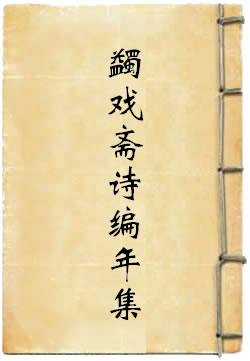 蠲戏斋诗编年集